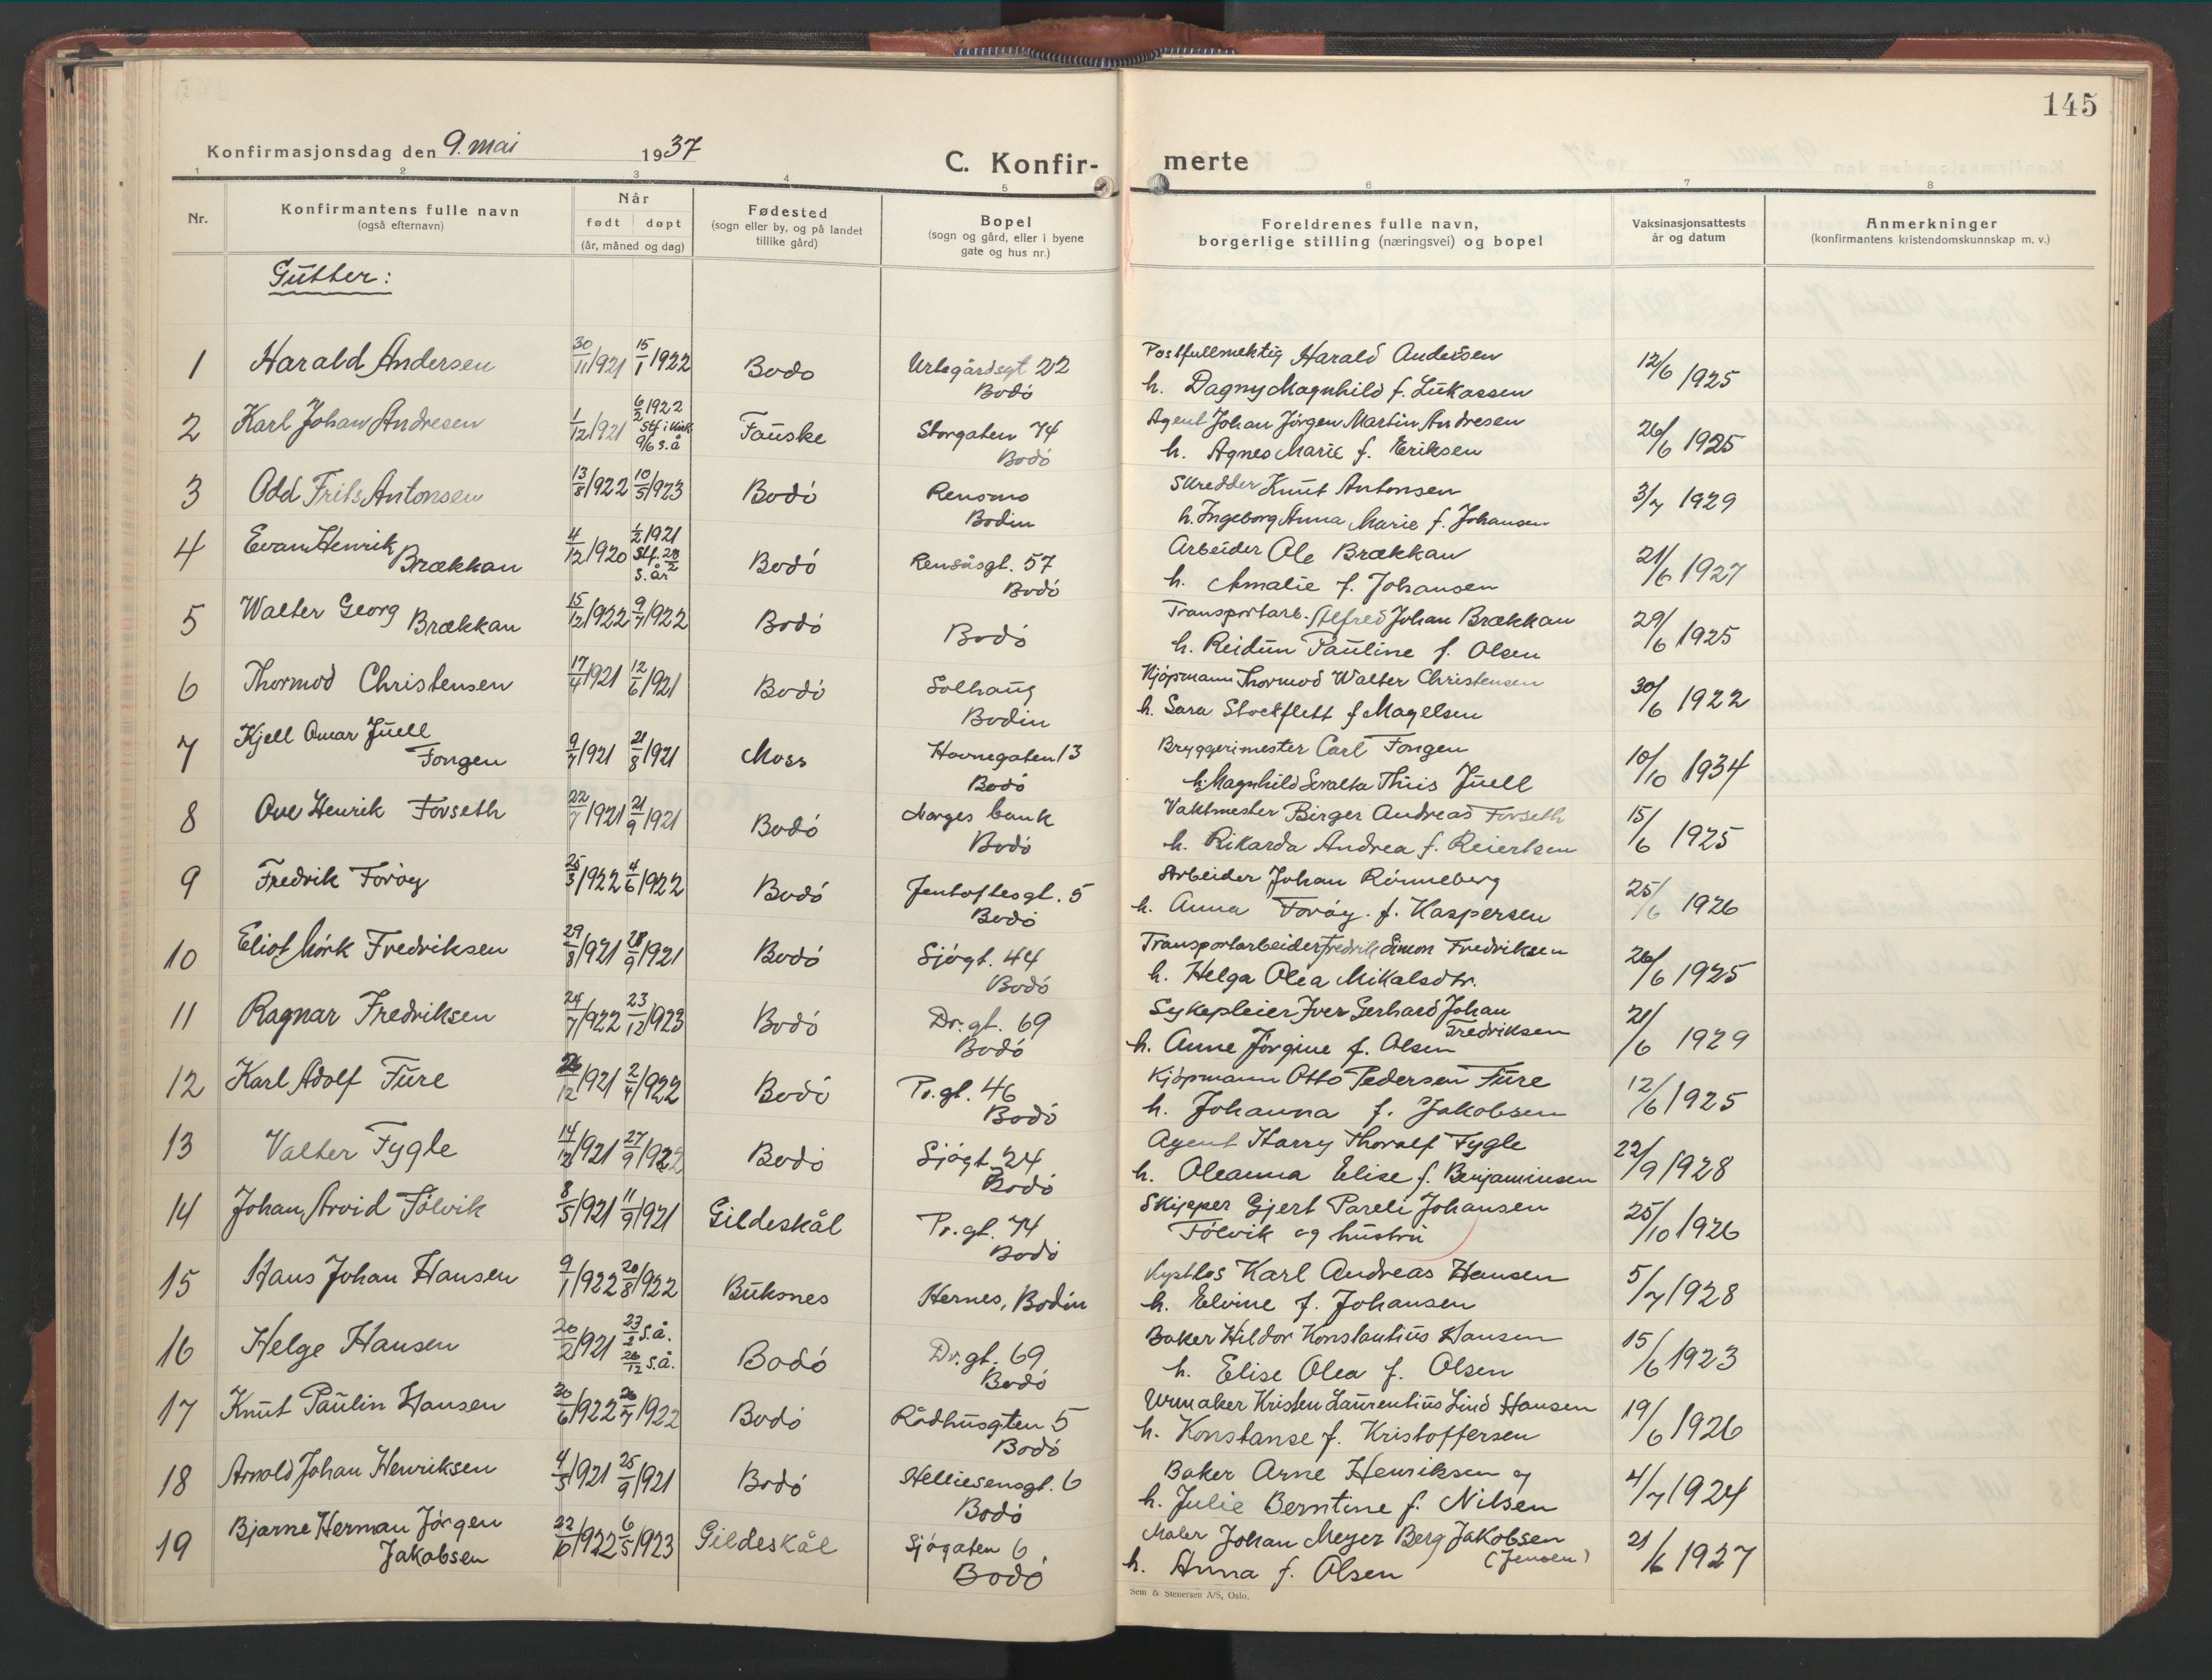 145
Konfirmasjonsdag den 9. mai 1937
C. Konfir-merte
1 2 3 4 5 6 7 8
Nr.
Konfirmantens fulle navn
(også efternavn)
Når
født døpt
(år, måned og dag)
Fødested
(sogn eller by, og på landet
tillike gård)
Bopel
(sogn og gård, eller i byene
gate og hus nr.)
Foreldrenes fulle navn,
borgerlige stilling (næringsvei) og bopel
Vaksinasjonsattests
år og datum
Anmerkninger
(konfirmantens kristendomskunnskap m. v.)
Gutter:
1 Harald Andersen 30/11/1921 15/1/1922 Bodø Urtegårdsgt 22 Postfullmektig Harald Andersen 12/6 1925
Bodø h. Dagny Magnhild f. Lukassen
2 Karl Johan Andresen 1/12/1921 6/2/1922 Stf. i kirk 9/6 s.å Fauske Storgaten 74 Agent Johan Jørgen Martin Andresen 26/6 1925
Bodø h. Agnes Marie f. Eriksen
3 Odd Frits Antonsen 13/8/1922 10/5/1923 Bodø Rensmo Skredder Knut Antonsen 3/7 1929
Bodin h. Ingeborg Anna Marie f. Johansen
4 Evan Henrik Brækkan 4/12/1920 1/2/1921 Stf. 28/2 s. år Bodø Rensåsgt. 57 Arbeider Ole Brækkan 21/6 1927
Bodø h. Amalie f. Johansen
5 Walter Georg Brækkan 15/12/1922 9/7/1922 Bodø Bodø Transportarb. Alfred Johan Brækkan 29/6 1925
h. Reidun Pauline f. Olsen
6 Thormod Christensen 17/4/1921 12/6/1921 Bodø Solhaug Kjøpmann Thormod Walter Christensen 30/6 1922
Bodin h. Sara Stockflett f Magelsen
7 Kjell Omar Juell Fongen 9/7/1921 21/8/1921 Moss Havnegaten 13 Bryggerimester Carl Fongen 10/10 1934
Bodø h. Magnhild Thiis Juell
8 Ove Henrik Forseth 22/7/1921 21/9/1921 Bodø Norges bank Vaktmester Birger Andreas Forseth 15/6 1925
Bodø h. Rikarda Andrea f. Reiertsen
9 Fredrik Forøy 25/3/1922 4/6/1922 Bodø Jentoftesgt. 5 Arbeider Johan Rønneberg 25/6 1926
Bodø h. Anna Forøy. f. Kaspersen
10 Eliot Mørk Fredriksen 29/8/1921 28/9/1921 Bodø Sjøgt. 44 Transportarbeider Fredrik Simon Fredriksen 26/6 1925
Bodø h. Helga Olea Mikalsdtr.
11 Ragnar Fredriksen 24/7/1922 23/12/1923 Bodø Dr.gt. 69 Sykepleier Iver Gerhard Johan Fredriksen 21/6 1929
Bodø h. Anne Jørgine f. Olsen
12 Karl Adolf Fure 26/12/1921 2/4/1922 Bodø Pr.gt. 46 Kjøpmann Otto Pedersen Fure 12/6 1925
Bodø h. Johanna f. Jakobsen
13 Valter Fygle 14/12/1921 27/9/1922 Bodø Sjøgt. 24 Agent Harry Thoralf Fygle 22/9 1928
Bodø h. Oleanna Elise f. Benjaminsen
14 Johan Arvid Følvik 8/5/1921 11/9/1921 Gildeskål Pr.gt. 74 Skipper Gjert Pareli Johansen 25/10 1926
Bodø Følvik og hustru
15 Hans Johan Hansen 9/1/1922 20/8/1922 Buksnes Hernes, Bodin Kystlos Karl Andreas Hansen 5/7 1928
h. Elvine f. Johansen
16 Helge Hansen 20/2/1921 23/2 s.å. 26/12 s.å. Bodø Dr.gt. 69 Baker Hildor Konstantius Hansen 15/6 1923
Bodø h. Elise Olea f. Olsen
17 Knut Paulin Hansen 30/6/1922 26/7/1922 Bodø Rådhusgten 5 Urmaker Kristen Laurentius Lind Hansen 19/6 1926
Bodø h. Konstanse f. Kristoffersen
18 Arnold Johan Henriksen 4/5/1921 25/9/1921 Bodø Helliesensgt. 6 Baker Arne Henriksen og 4/7 1924
Bodø h. Julie Berntine f. Nilsen
19 Bjarne Herman Jørgen Jakobsen 22/10/1922 6/5/1923 Gildeskål Sjøgaten 6. Maler Johan Meyer Berg Jakobsen 21/6 1927
Bodø h. Anna f. Olsen (Jensen)
Sem & Stenersen A/S, Oslo.